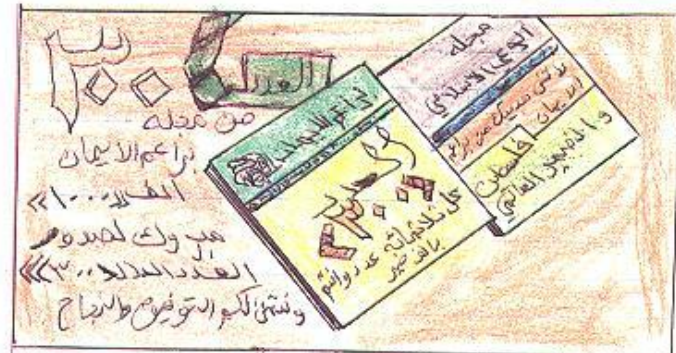 ٣٠٠
العدد
من مجلة
براعم الايمان
العدد ٣٠٠»
مبروك لصدور
العدد الـ ٣٠٠»
ونتمنى لكم التوفيق والنجاح
براعم الايمان
٣٠٠
كل ثلاثمائة عدد وانتم
بالف خير
مجلة
الوعي الاسلامي
الايمان
فلسطين
والضمير العالمي